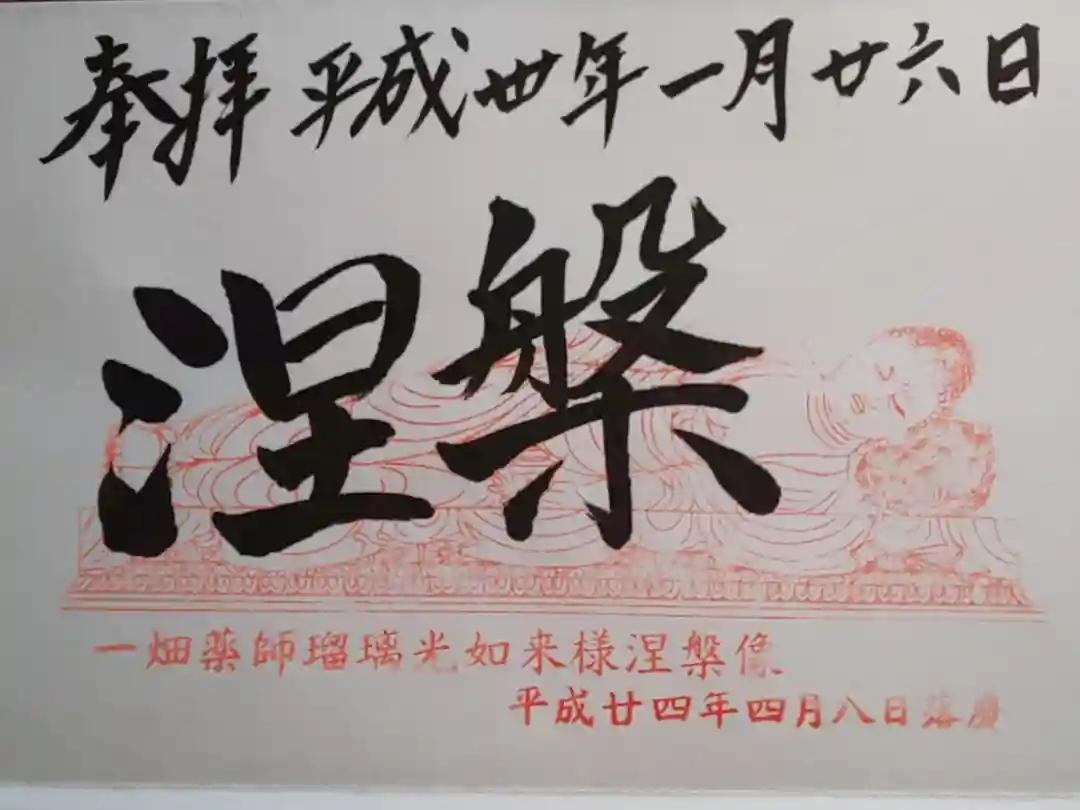 奉拝 平成卅年一月廿六日
涅槃
一畑薬師瑠璃光如来様涅槃像
平成廿四年四月八日落慶